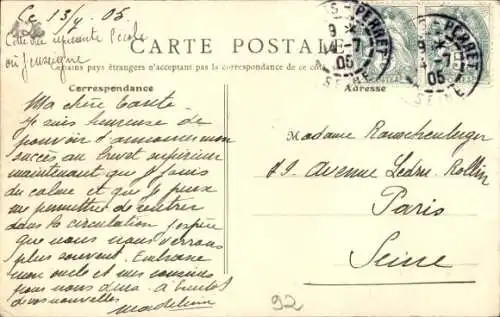 Le 13/7 05
Cette vue représente l'école
où j'enseigne
CARTE POSTALE
Certains pays étrangers n'acceptent pas la correspondance de ce côté
Correspondance
Adresse
Ma chère tante
Je suis heureuse de
pouvoir t'annoncer mon
succès au brevet supérieur
maintenant que je jouis
du calme et que je peux
me permettre de rentrer
dans la circulation j'espère
que nous nous verrons
plus souvent. Embrasse
mon oncle et mes cousins
pour nous deux. à bientôt
de vos nouvelles
Madeleine
Madame Rauschenberger
89. Avenue Ledru. Rollin
Paris
Seine
92
PERRET
05
SEINE
PERRET
05
SEINE